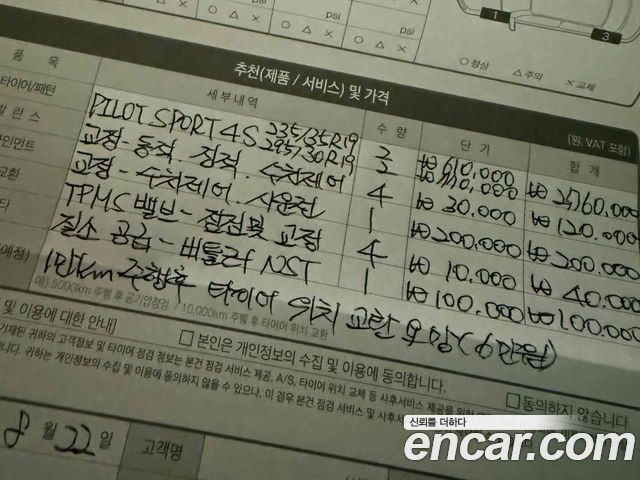 psi psi
○ △ × ○ △ × ○ △ ×
1 3
○ 정상 △ 주의 × 교체
추천(제품 / 서비스) 및 가격
(원, VAT 포함)
품 목 세부내역 수 량 단 가 합 계
타이어/패턴 PILOT SPORT 4S 235/35R19 2 ₩ 610,000
295/30R19 2
교정-동적. 정적. 수치제어 4 ₩ 30.000 ₩ 120.000
교정-수치제어. 시운전 1 ₩ 200.000 ₩ 200.000
TPMS 밸브-점검및 교정 4 ₩ 10.000 ₩ 40.000
질소 공급- NST 1 ₩ 100.000 ₩ 100.000
1만km 주행후 타이어 위치 교환
예) 5000km 주행 후 공기압점검 / 10,000km 주행 후 타이어 위치 교환
및 이용에 대한 안내]
□ 본인은 개인정보의 수집 및 이용에 동의합니다. □ 동의하지 않습니다
기재된 귀하의 고객정보 및 타이어 점검 정보는 본건 점검 서비스 제공, A/S, 타이어 위치 교체 등 사후서비스 제공을 위한
귀하는 개인정보의 수집 및 이용에 동의하지 않을 수 있으나, 이 경우 본건 점검 서비스 및 사후서비스
8 월 22 일 고객명
신뢰를 더하다
encar.com